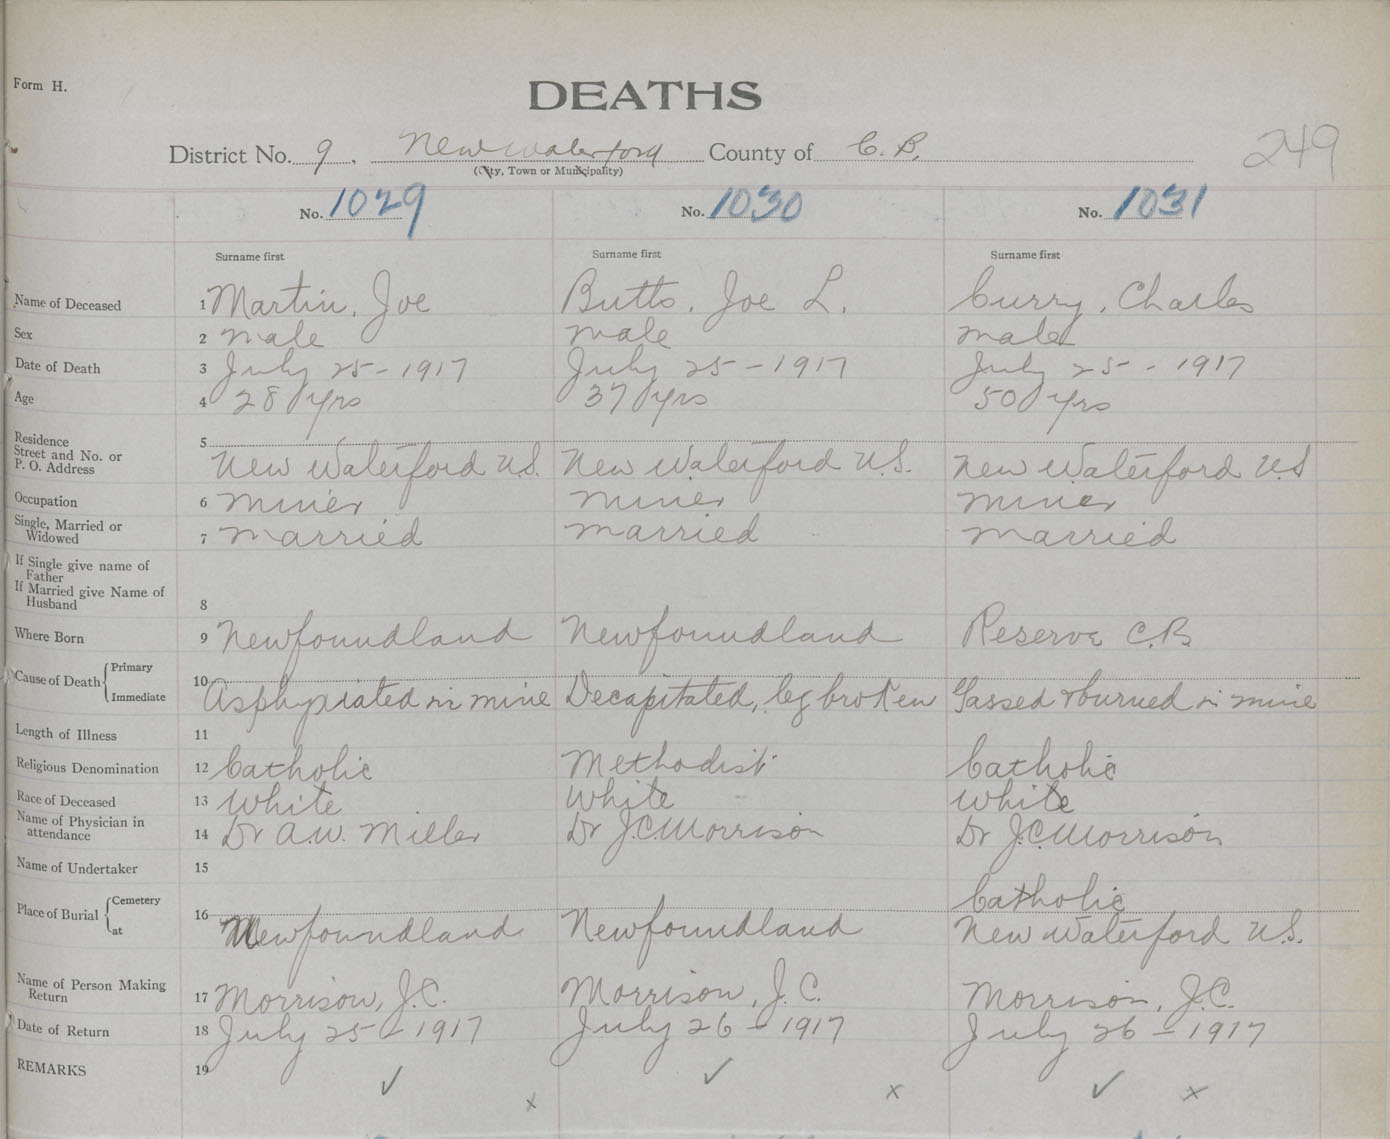 Form H.
DEATHS
District No. 9, New Waterford County of C. B.
(City, Town or Municipality)
249
No. 1029 No. 1030 No. 1031
Surname first Surname first Surname first
Name of Deceased 1 Martin, Joe Butts, Joe L. Curry, Charles
Sex 2 male male male
Date of Death 3 July 25-1917 July 25-1917 July 25-1917
Age 4 28 yrs 37 yrs 50 yrs
Residence 5
Street and No. or
P. O. Address New Waterford U.S. New Waterford U.S. New Waterford U.S
Occupation 6 miner miner miner
Single, Married or
Widowed 7 married married married
If Single give name of
Father
If Married give Name of
Husband 8
Where Born 9 Newfoundland Newfoundland Reserve C.B.
Cause of Death Primary 10
Immediate Asphyxiated in mine Decapitated, leg broken Gassed & burned in mine
Length of Illness 11
Religious Denomination 12 Catholic Methodist Catholic
Race of Deceased 13 White White White
Name of Physician in
attendance 14 Dr A.W. Miller Dr J.C. Morrison Dr J.C. Morrison
Name of Undertaker 15
Place of Burial Cemetery 16 Catholic
at Newfoundland Newfoundland New Waterford U.S.
Name of Person Making
Return 17 Morrison, J.C. Morrison, J.C. Morrison, J.C.
Date of Return 18 July 25-1917 July 26-1917 July 26-1917
REMARKS 19 ✓ x ✓ x ✓ x